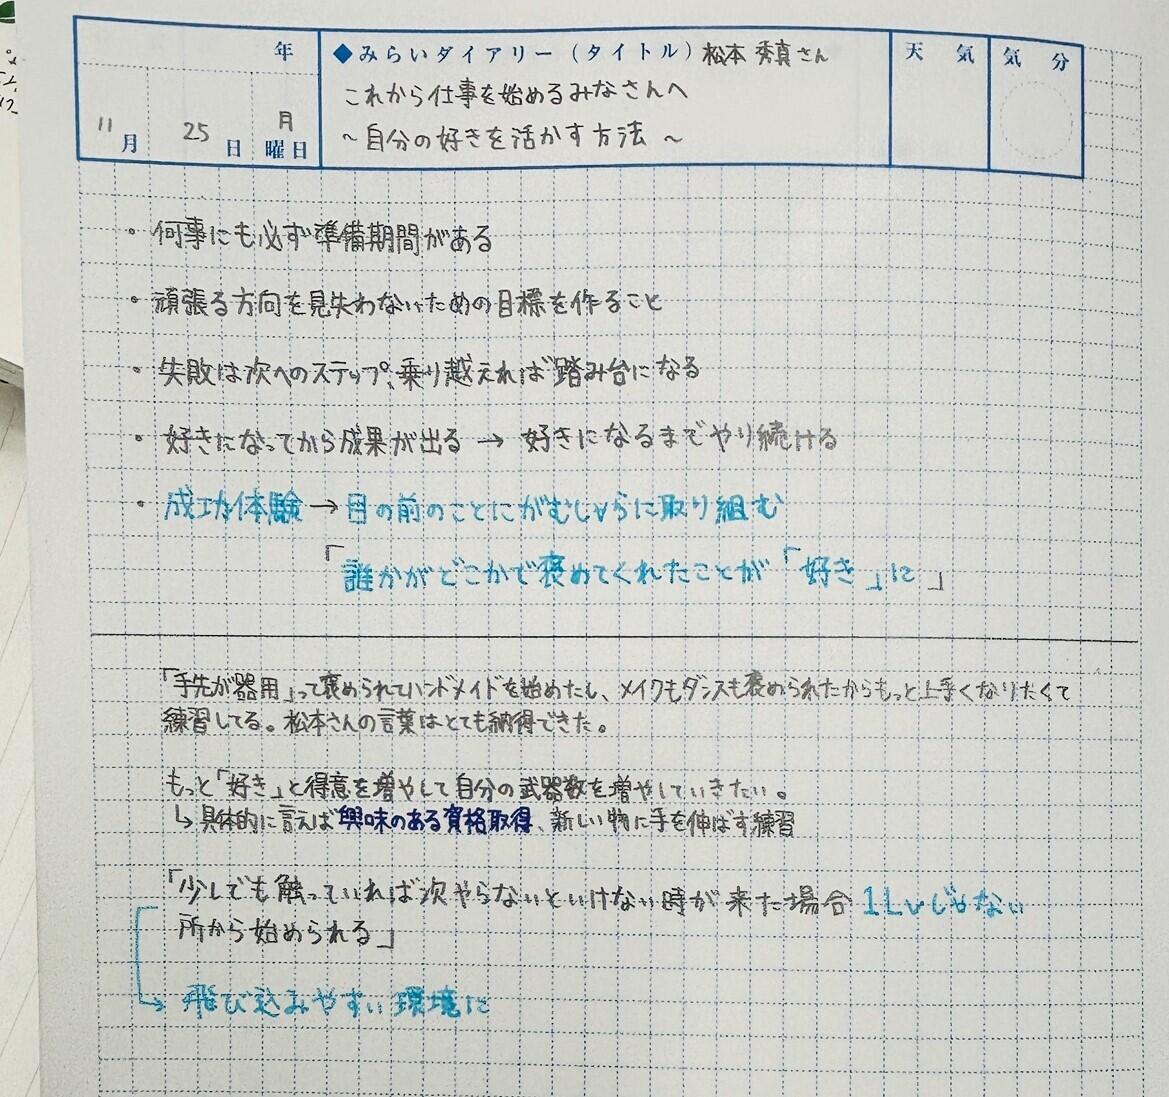 年
11月 25日 月曜日
◆みらいダイアリー(タイトル) 松本 秀真さん
これから仕事を始めるみなさんへ
~自分の好きを活かす方法~
天気
気分
・何事にも必ず準備期間がある
・頑張る方向を見失わないための目標を作ること
・失敗は次へのステップ、乗り越えれば踏み台になる
・好きになってから成果が出る → 好きになるまでやり続ける
・成功体験→目の前のことにがむしゃらに取り組む
「誰かがどこかで褒めてくれたことが「好き」に」
「手先が器用」って褒められてハンドメイドを始めたし、メイクもダンスも褒められたからもっと上手くなりたくて
練習してる。松本さんの言葉はとても納得できた。
もっと「好き」と得意を増やして自分の武器数を増やしていきたい。
↳具体的に言えば興味のある資格取得、新しい物に手を伸ばす練習
「少しでも触っていれば次やらないといけない時が来た場合1Lvじゃない
所から始められる」
→飛び込みやすい環境に